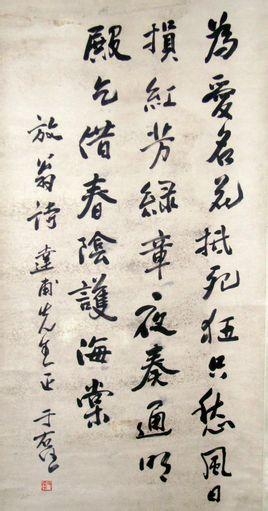 為愛名花抵死狂只愁風日
損紅芳綠章夜奏通明
殿乞借春陰護海棠
放翁詩 達甫先生正 于右任